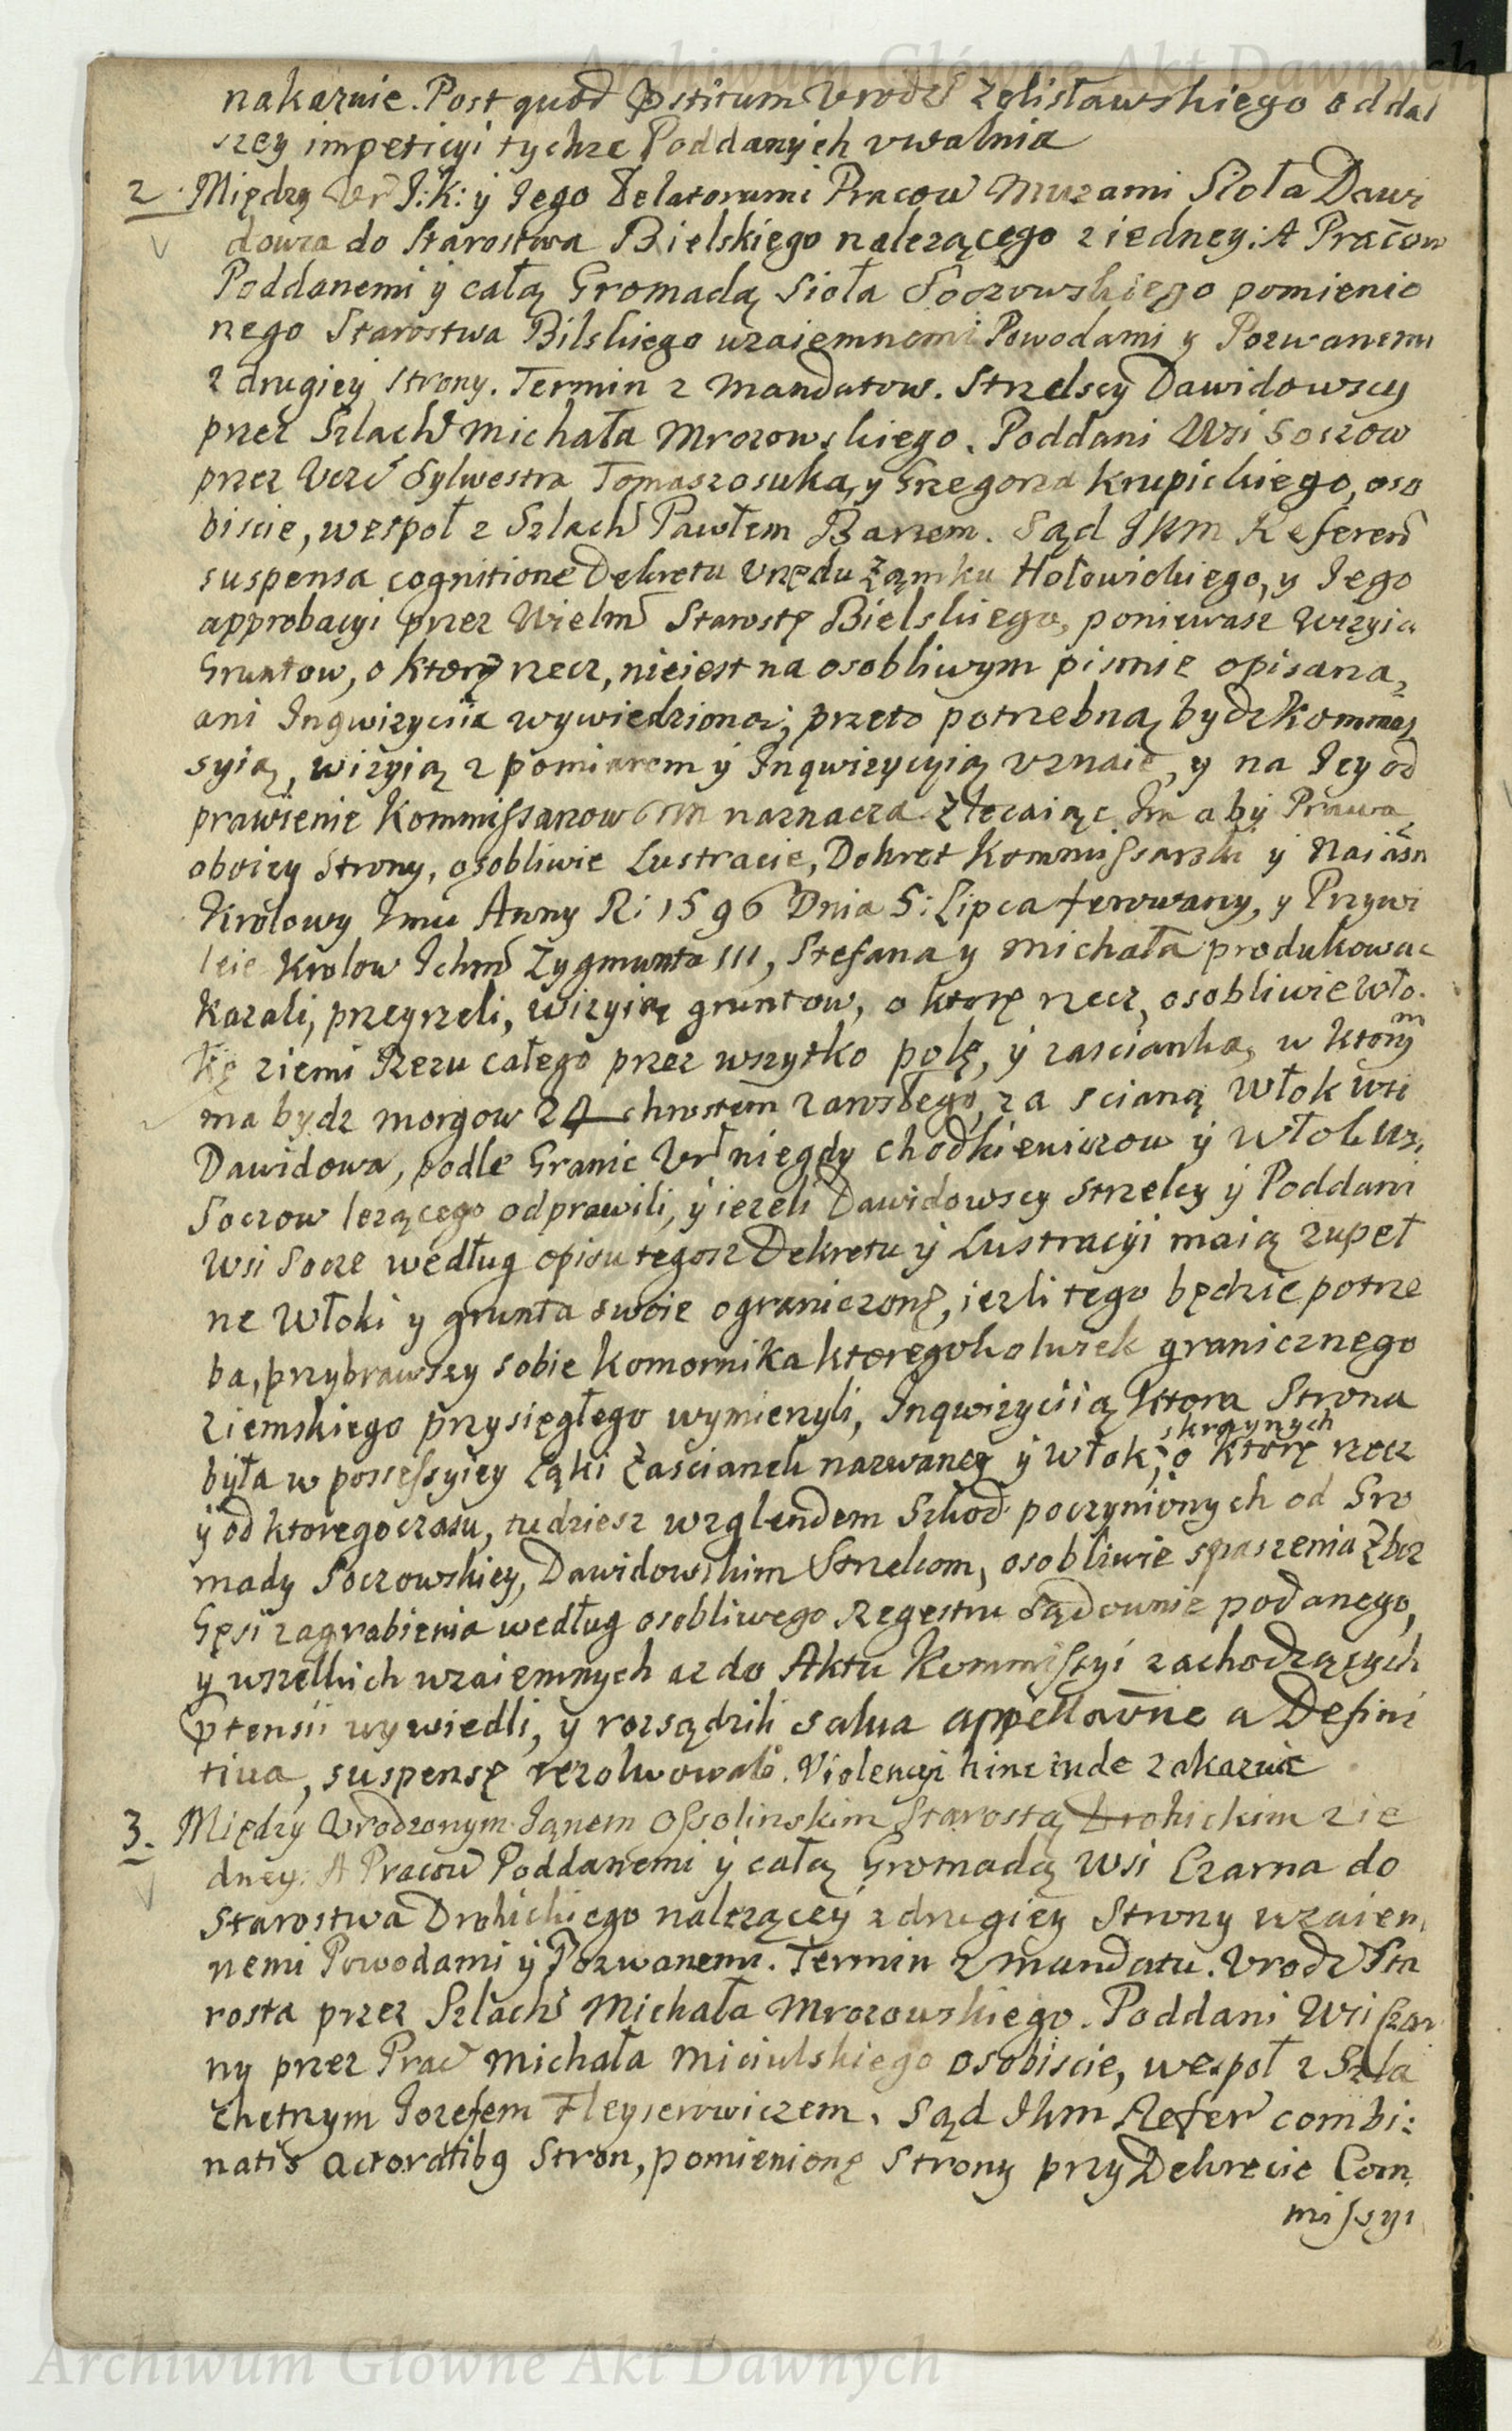 Archiwum Główne Akt Dawnych
nakazuie. Post quod pstitum Urodz Zelisławskiego od dal
szey impeticyi tychze Poddanych uwalnia
2. Między Ur I: K: y Jego Delatorami Pracow Muzami Sioła Dawi
dowza do Starostwa Bielskiego nalezącego z iedney: A Pracow
Poddanemi y całą Gromadą Sioła Soczowskiego pomienio
nego Starostwa Bilskiego wzaiemnemi Powodami y Pozwanemi
z drugiey strony. Termin z Mandatow. Strzelscy Dawidowscy
przez Szlach Michała Mrozowskiego. Poddani Wsi Soczow
przez Ucz Sylwestra Tomaszosuka, y Grzegorza Krupickiego, oso
biscie, wespoł z Szlach Pawłem Barzem. Sąd JKM Referen
suspensa cognitione Dekretu Urzędu Zamku Hołowickiego, y Jego
approbacyi przez Wielm Starostę Bielskiego, poniewasz Wizyia
Gruntow, o ktorę rzecz, nieiest na osobliwym pismie opisana,
ani Inqwizycyia wywiedziona; przeto potrzebną bydz Kommis
syią, wizyią z pomiarem y Inqwizycyią uznaie, y na Jey od
prawienie Kommissarzow JKM naznacza. Zlecaiąc Im aby Prawa
oboiey Strony, osobliwie Lustracie, Dekret Kommissarski y Naiasn
Krolowy Jmci Anny R: 1596 Dnia 5: Lipca ferowany, y Przywi
leie Krolow Ichm Zygmunta III, Stefana y Michała produkowac
kazali, przeyrzeli, wizyią gruntow, o ktorę rzecz, osobliwie Wło.
kę ziemi Rezu całego przez wszytko polę, y zascianka, w ktorym
ma bydz morgow 24 chrostem zarosłego, za scianą Włok Wsi
Dawidowa, podle Granic Ur niegdy Chodkiewiczow y Włok Wsi
Soczow lezącego odprawili, y iezeli Dawidowscy Strzelcy y Poddani
Wsi Socze według opisu tegosz Dekretu y Lustracyi maią zupeł
ne Włoki y grunta swoie ograniczonę, iezli tego będzie potrze
ba, przybrawszy sobie Komornika ktoregokolwiek granicznego
ziemskiego przysięgłego wymierzyli, Inqwizycyią ktora Strona
była w possessyiey Łąki Zascianek nazwaney y Włok skraynych, o ktorę rzecz
y od ktorego czasu, tudziesz wzglendem Szkod poczynionych od Gro
mady Soczowskiey, Dawidowskim Strzelcom, osobliwie spaszenia Zboz
Gęsi zagrabienia według osobliwego Regestru Sądownie podanego,
y wszelkich wzaiemnych az do Aktu Kommissyi zachodzących
ptensii wywiedli, y rozsądzili salva appellaone a Defini
tiva, suspensę rezolwowali. Violencyi hinc inde zakazuie
3. Między Urodzonym Janem Ossolinskim Starostą Drohickim z ie
dney: A Pracow Poddanemi y całą Gromadą Wsi Czarna do
Starostwa Drohickiego nalezącey z drugiey Strony wzaiem
nemi Powodami y Pozwanemi. Termin z Mandatu. Urodz Sta
rosta przez Szlach Michała Mrozowskiego. Poddani Wsi Czar
ny przez Prac Michała Miciulskiego osobiscie, wespoł z Szla
chetnym Jozefem Fleyserowiczem. Sąd JKM Refer combi:
natis actoratibg Stron, pomienionę Strony przy Dekrecie Com
missyi
Archiwum Główne Akt Dawnych